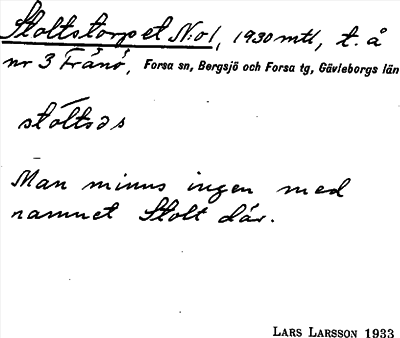 Stoltstorpet N:o1, 1930 mtl, t. å
nr 3 Frånö, Forsa sn, Bergsjö och Forsa tg, Gävleborgs län
stóltsəs
Man minns ingen med
namnet Stolt där.
LARS LARSSON 1933